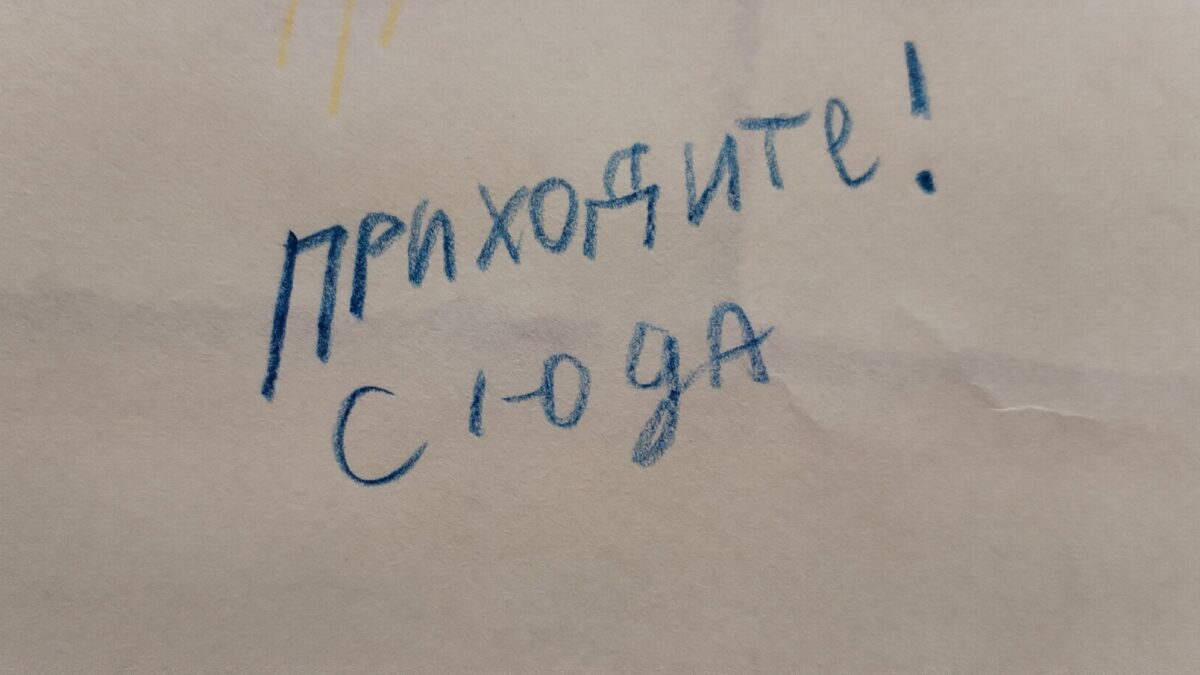 приходите!
сюда